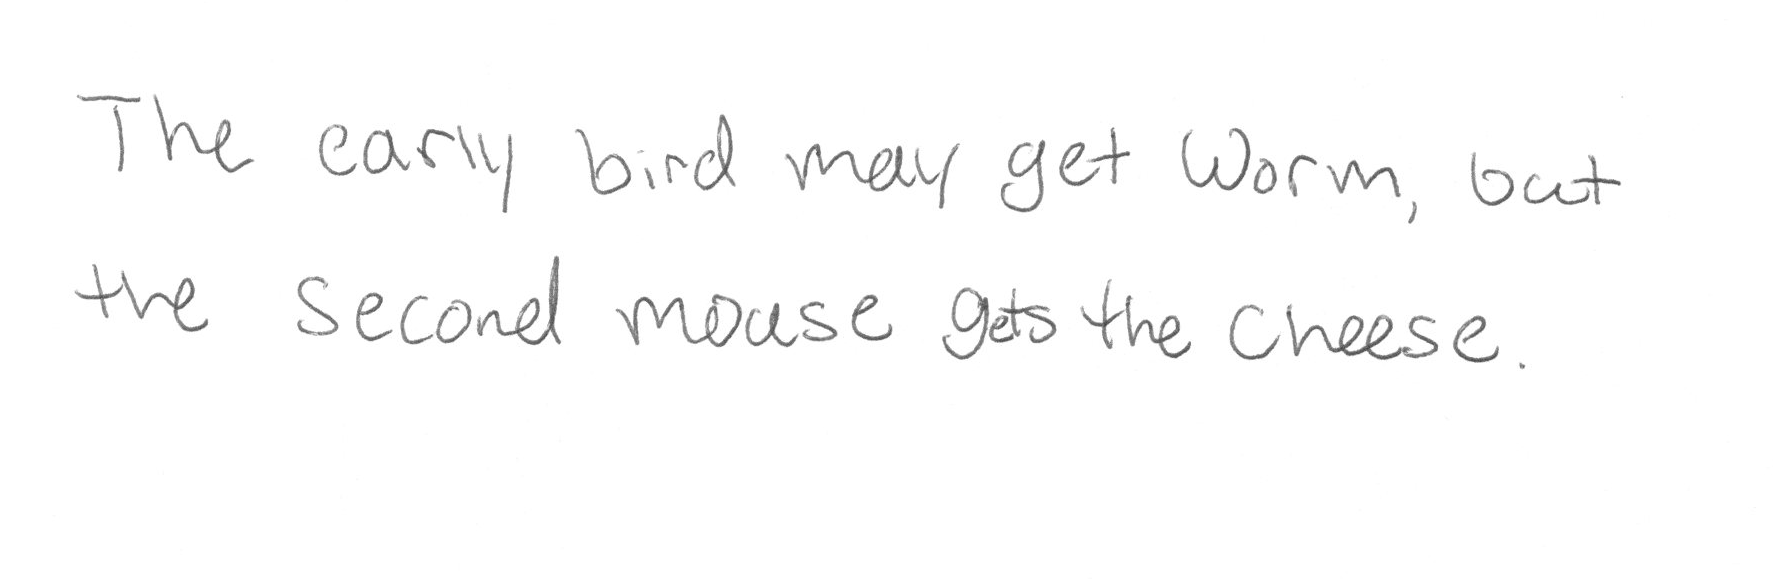 The early bird may get worm, but
the second mouse gets the cheese.